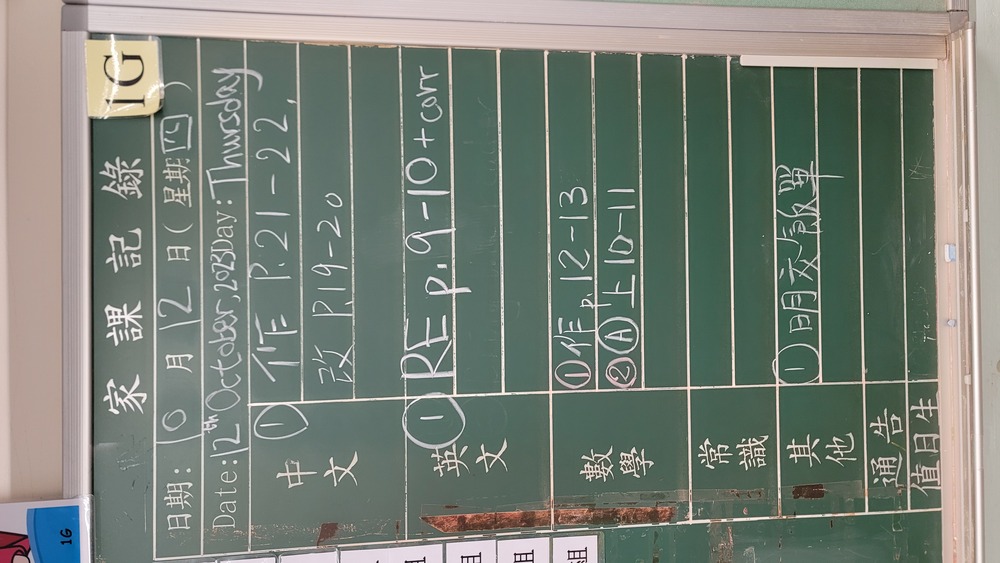 1G
家課記錄
日期: 10月12日(星期四)
Date: 12th October, 2023 Day: Thursday
中文
① 作 P.21-22.
改 P.19-20
英文
① RE p.9-10 + corr
數學
① 作 p.12-13
② Ⓐ上10-11
常識
其他
①明交
通告
值日生
1G
組
組
組
組